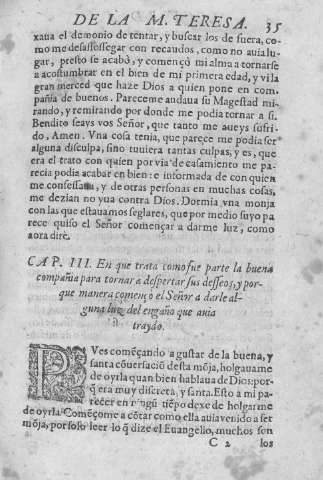 DE LA M. TERESA. 35
xaua el demonio de tentar, y buscar los de fuera, co-
mo me desassossegar con recaudos, como no auia lu-
gar, presto se acabò, y començò mi alma a tornarse
a acostumbrar en el bien de mi primera edad, y vi la
gran merced que haze Dios a quien pone en com-
pañia de buenos. Pareceme andaua su Magestad mi-
rando, y remirando por donde me podia tornar a si.
Bendito seays vos Señor, que tanto me aueys sufri-
do, Amen. Vna cosa tenia, que parece me podia ser
alguna disculpa, sino tuuiera tantas culpas, y es, que
era el trato con quien por via de casamiento me pa-
recia podia acabar en bien: e informada de con quien
me confessaua, y de otras personas en muchas cosas,
me dezian no yua contra Dios. Dormia vna monja
con las que estauamos seglares, que por medio suyo pa
rece quiso el Señor començar a darme luz, como
aora dirè.
CAP. III. En que trata como fue parte la buena
compañia para tornar a despertar sus desseos, y por-
que manera començo el Señor a darle al-
guna luz del engaño que auia
traydo.
PVes comẽçando a gustar de la buena, y
santa cõuersaciõ desta mõja, holgauame
de oyrla quan bien hablaua de Dios: por-
q̃ era muy discreta, y santa. Esto a mi pa-
recer en ningũ tiẽpo dexe de holgarme
de oyrlo. Começome a cõtar como ella auia venido a ser
mõja, por solo leer lo q̃ dize el Euangelio, muchos son
C 2 los